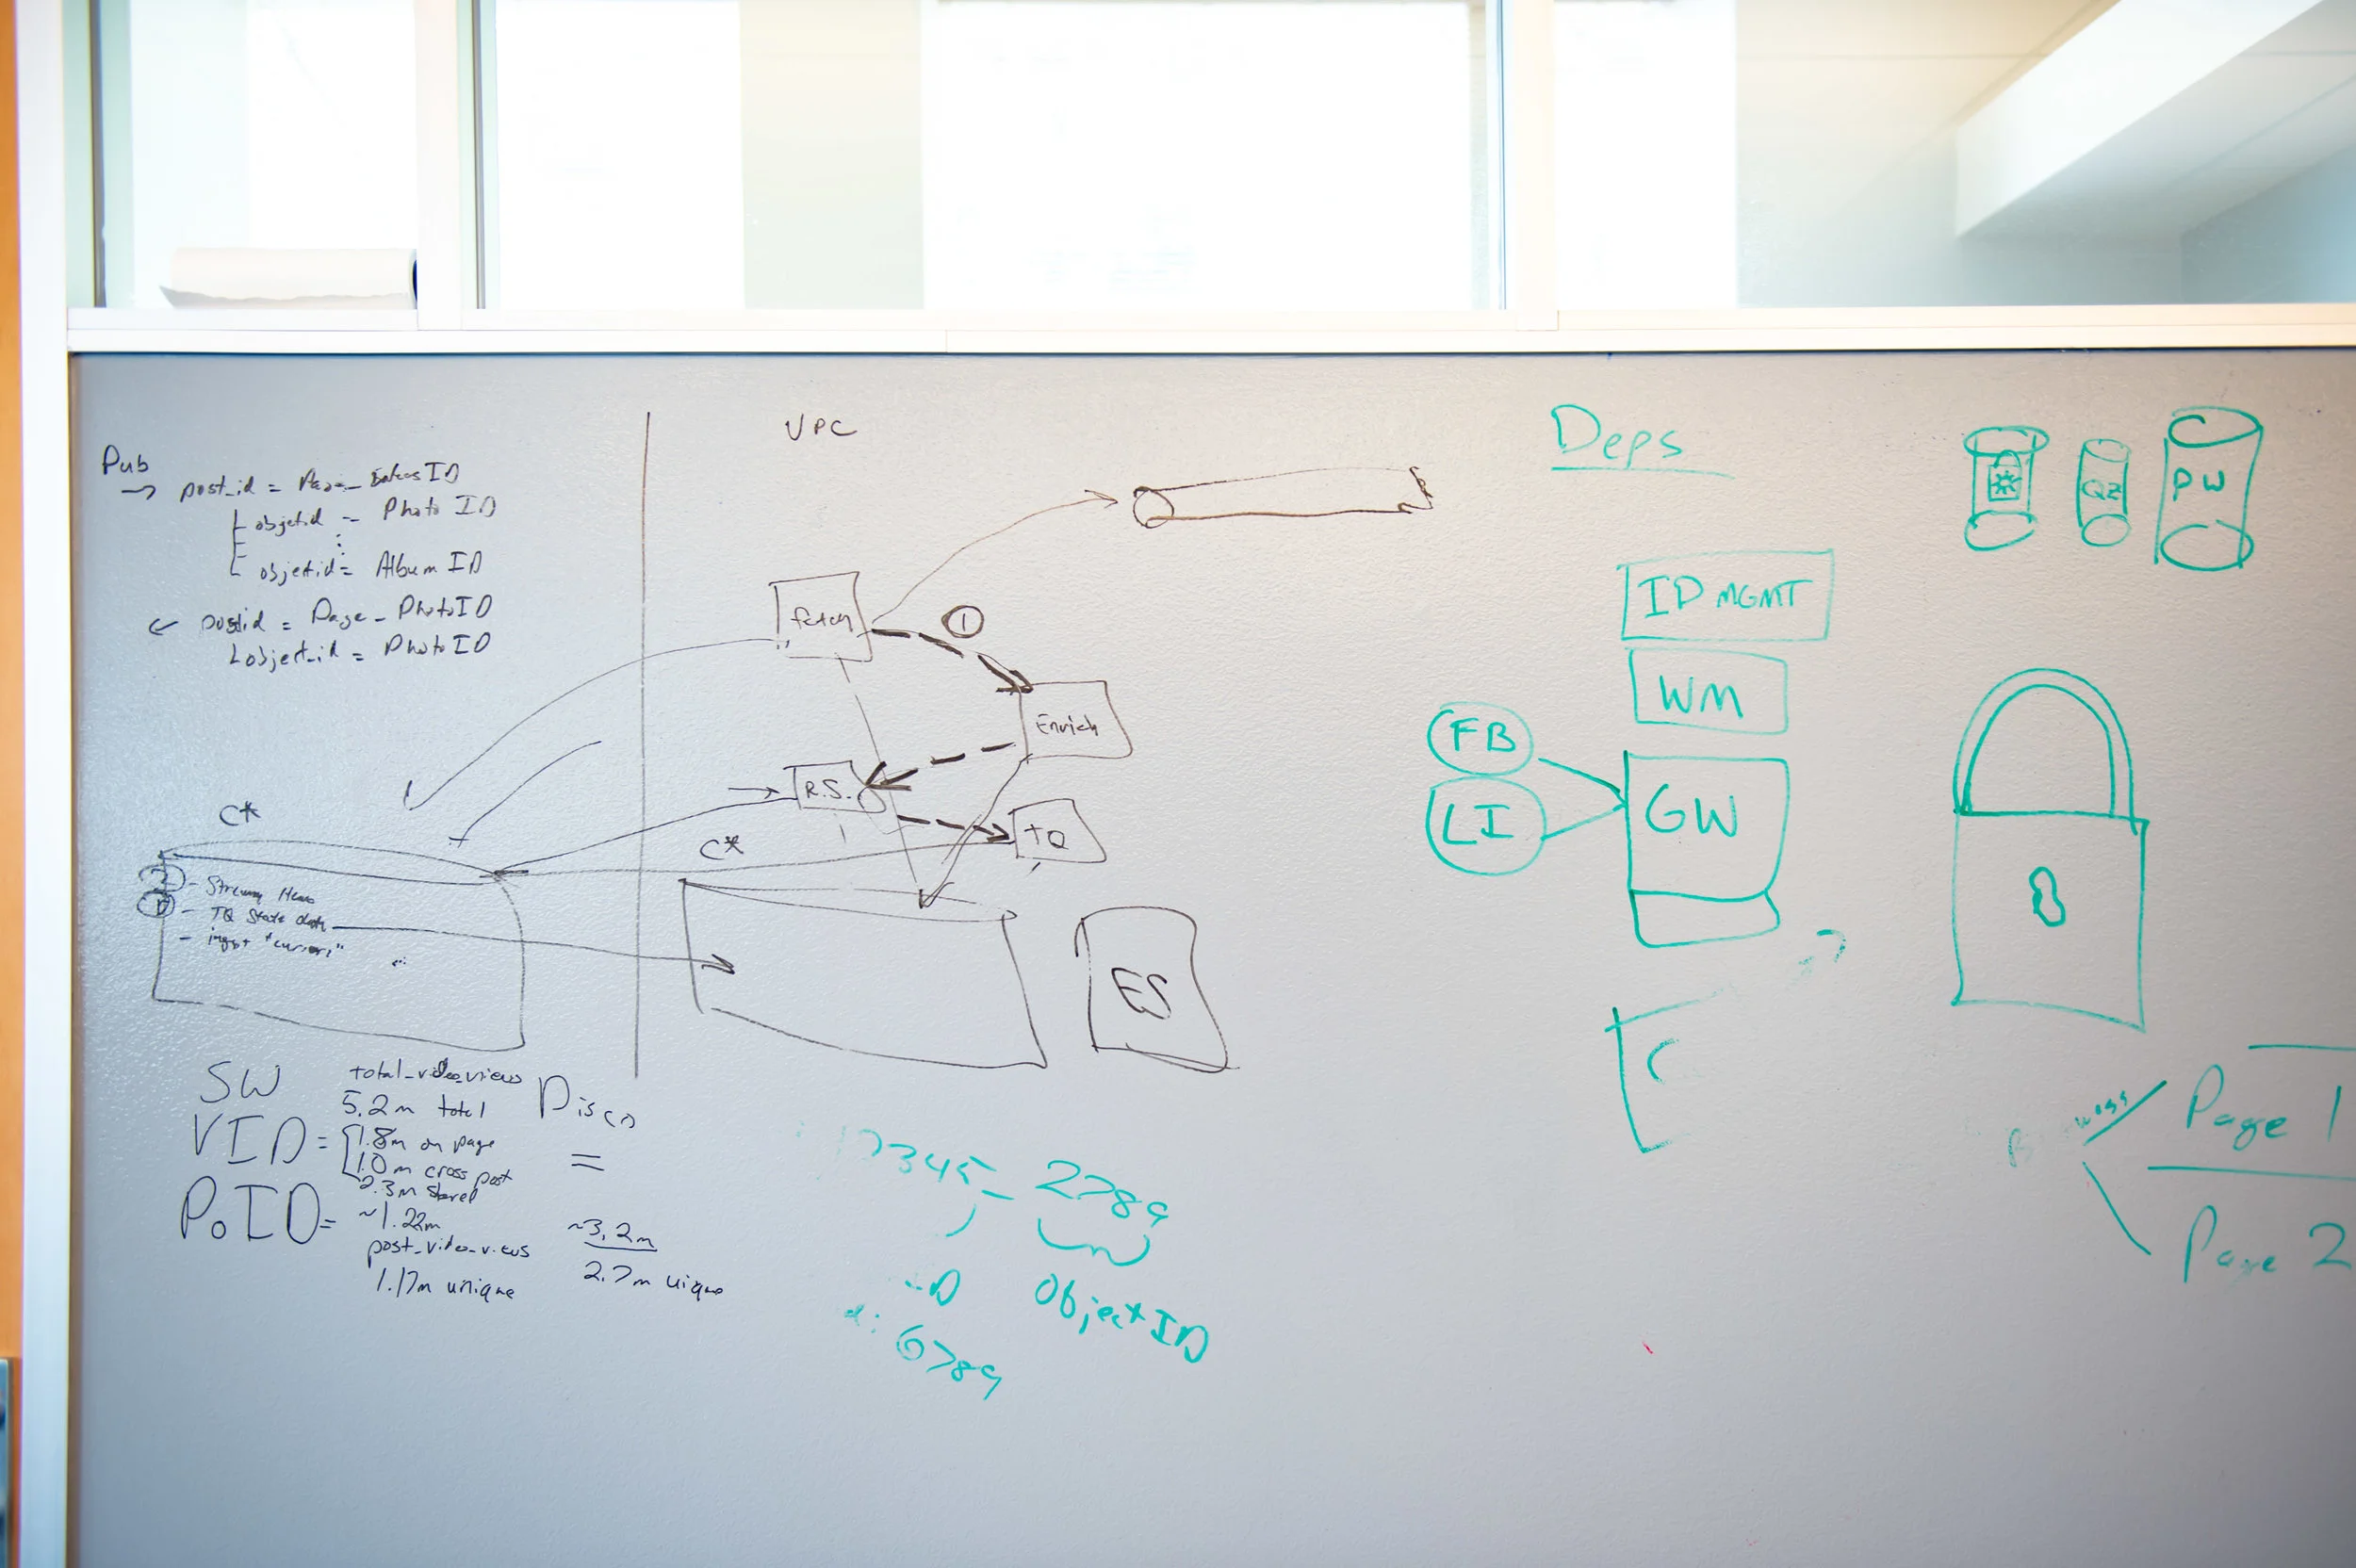 Pub
→ post_id = Page_ ID
objetid = Photo ID
objetid = Album ID
← postid = Page_PhotoID
object_id = PhotoID
VPC
fetch
1
Enrich
R.S.
TQ
C*
C*
2 - Stream Items
1 - TQ State data
- ingst "cursori"
ES
SW
VID =
PoID =
total_video_views
5.2m total
1.8m on page
1.0m cross post
2.3m shared
~1.22m
post_video_views
1.17m unique
Disco
=
~3.2m
2.7m uique
2789
Object ID
6789
Deps
QZ
PW
ID MGMT
WM
FB
LI
GW
C
Page 1
Page 2